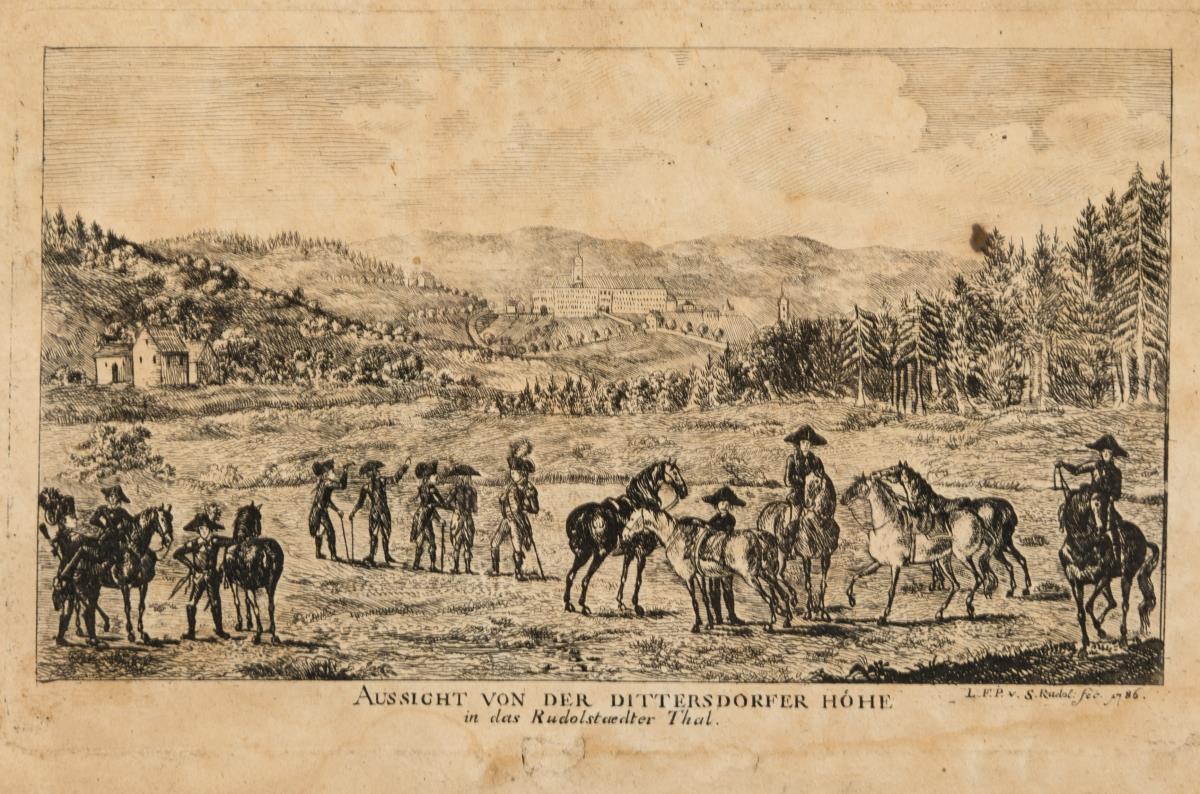 AUSSICHT VON DER DITTERSDORFER HÖHE
in das Rudolstaedter Thal.
L. F. P. v. S. Rudol: fec. 1786.